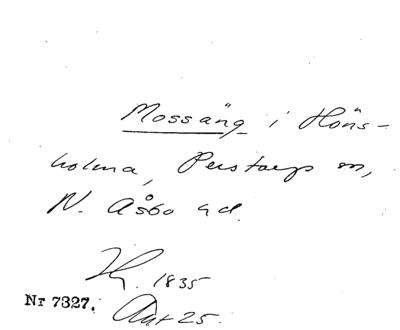 Mossäng i Höns-
holma, Perstorps sn,
N. Åsbo hd.
1835
Nr 7327.
Akt 25.